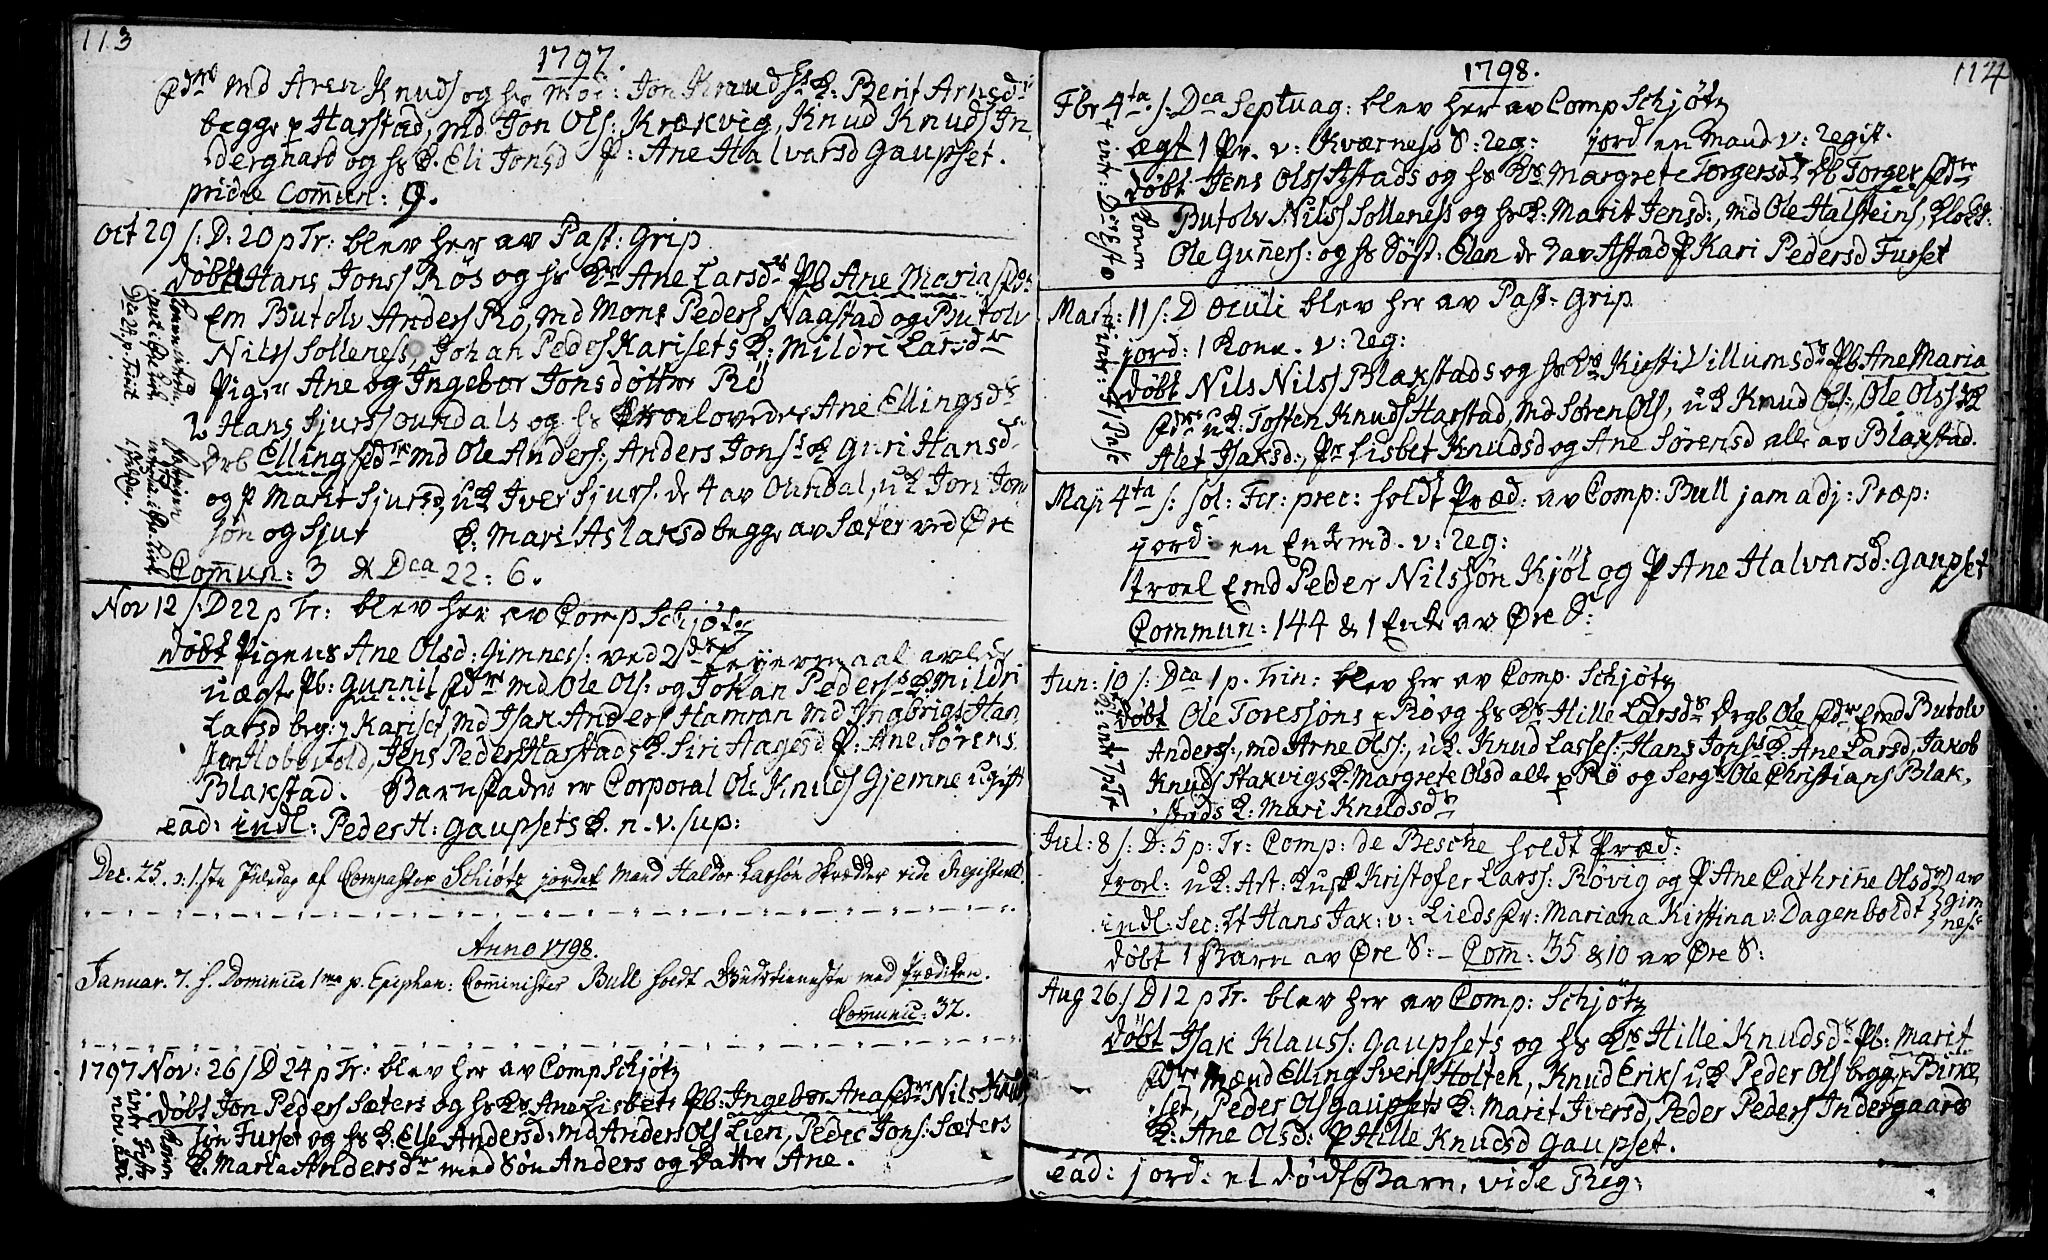 113
1797.
Fdre Md Aren Knuds og hs Moe: Jon Knuds hs K: Berit Arnsdr
begge p Harstad, Md Jon Ols: Krækvig, Knud Knuds In
dergaard og hs K. Eli Jonsd P: Ane Halvarsd Gaupset.
pridie Comun: 9.
Oct 29 s: D: 20 p Tr: blev her av Past: Grip
døbt Hans Jonss Rös og hs Ks Ane Larsdrs Pb Ane Maria Fdr:
Em Butolv Anders Rö, Md Mons Peders Nagstad og Butolv
Nilss Solleness, Johan Peders Karisets K: Mildri Larsdr
Piger Ane og Ingebor Jonsdøttrer Rö
2 Hans Sjurss oundals og hs Troelovedes Ane Ellingsds
Drb Elling Fdre Md Ole Anders:, Anders Jons s K Guri Hansd
og P Marit Sjursd, uK Iver Sjurs. de 4 av Oundal, uK Jon Jon
søn og Sjut K: Mari Aslaksd begge av Sæter ved Øre
Comun: 3 & Dca 22: 6.
Nov 12 s: D 22 p Tr: blev her av Comp Schjøtz
døbt Pigens Ane Olsd: Gimness: ved 2de Leyermaal avlede
uægte Pb: Gunnil Fdre Md Ole Ols: og Johan Peders s K: Mildri
Larsd beg: p Kariset, Md Isak Anders Hamran Md Ingbrigt Han
son Hoberfold, Jens Peders Harstads K. Siri Aagesd P: Ane Sørens
Blakstad. Barnefader er Corporal Ole Knuds Gjemne ugift
ead: indl: Peder H: Gaupsets K. n. v. sup:
Dec. 25. o: 1ste Juledag af Compastor Schiøtz jordet Mand Haldor Larsön Skrædder vide Registeret.
Anno 1798.
Januar. 7. s. Dominica 1ma p. Epiphan: Comminister Bull holdt Gudstieneste med Prædiken.
Communic: 32.
1797 Nov: 26 s D 24 p Tr: blev her av Comp Schjøtz
døbt Jon Peders Sæters og hs Ks Ane Lisbets Pb: Ingebor Ana Fdre Nils Knud
søn Furset og hs K: Else Andersd: Md Anders Ols Lien, Peder Jons: Sæters
K: Maria Andersdr med Søn Anders og Datter Ane.
114
1798.
Fbr 4ta s: Dca Septuag: blev her av Comp Schjøtz
ægt 1 Pr. v: Kværness S: Reg: jord en Mand v: Regist.
døbt Jens Olss Astads og hs Ks Margrete Torgersdrs Db Torger Fdre
Butolv Nilss Solleness og hs K: Marit Jensd:, Md Ole Halsteins, Klock.
Ole Guners: og hs Søst: Elen de 3 av Astad P Kari Pedersd Furset
Mart: 11 s: D Oculi blev her av Past: Grip
jord: 1 Kone. v: Reg:
døbt Nils Nilss Blakstads og hs Ks Kirsti Villumsdrs Pb Ane Maria
Fdre uK: Tosten Knuds Harstad, Md Søren Ols, uK Knud Ols:, Ole Olss s K
Alet Isaksd:, Pr Lisbet Knudsd og Ane Sørensd alle av Blakstad.
Maji 4ta s: sol: Fer: prec: holdt Præd: av Comp: Bull jam adj: Præp:
jord: en Enkemd. v: Reg:
troel Emd Peder Nilssøn Kjöl og P Ane Halvarsd: Gaupset
Commun: 144 & 1 Enke av Øre S:
Jun: 10 s: Dca 1 p. Trin: blev her av Comp. Schjøtz
døbt Ole Toressøns p Rö og hs Ks Hille Larsds Drgb Ole Fdr Emd Butolv
Anderss:, Md Arne Olss:, uK. Knud Lasses:, Hans Jons s K: Ane Larsd, Jakob
Knuds Stakvigs K: Margrete Olsd alle p Rö og Serg: Ole Christians Blak,
stads K: Mari Knudsdr
Jul: 8 s: D: 5 p: Tr: Comp: de Besche holdt Præd:
troel: uK: Ast: Kusk Kristofer Larss: Rövig og P Ane Cathrine Olsdr av
indl: Sec: Lt Hans Jak: v: Lieds Fr: Mariana Kirstina v: Dagenboldt Gim
ness
døbt 1 Barn av Øre S: – Com: 35 & 10 av Øre S:
Aug 26 s D 12 p Tr. blev her av Comp: Schjøtz
døbt Isak Klauss: Gaupsets og hs Ks Hille Knudsds Pb: Marit
Fdre Mænd Elling Svens Holten, Knud Eriks uK Peder Ols begge Birke
set, Peder Ols Gaupsets K: Marit Iversd, Peder Peders Indergaards
K: Ane Olsd: P Hille Knudsd Gaupset.
ead: jord: et dødf. Barn, vide Reg: